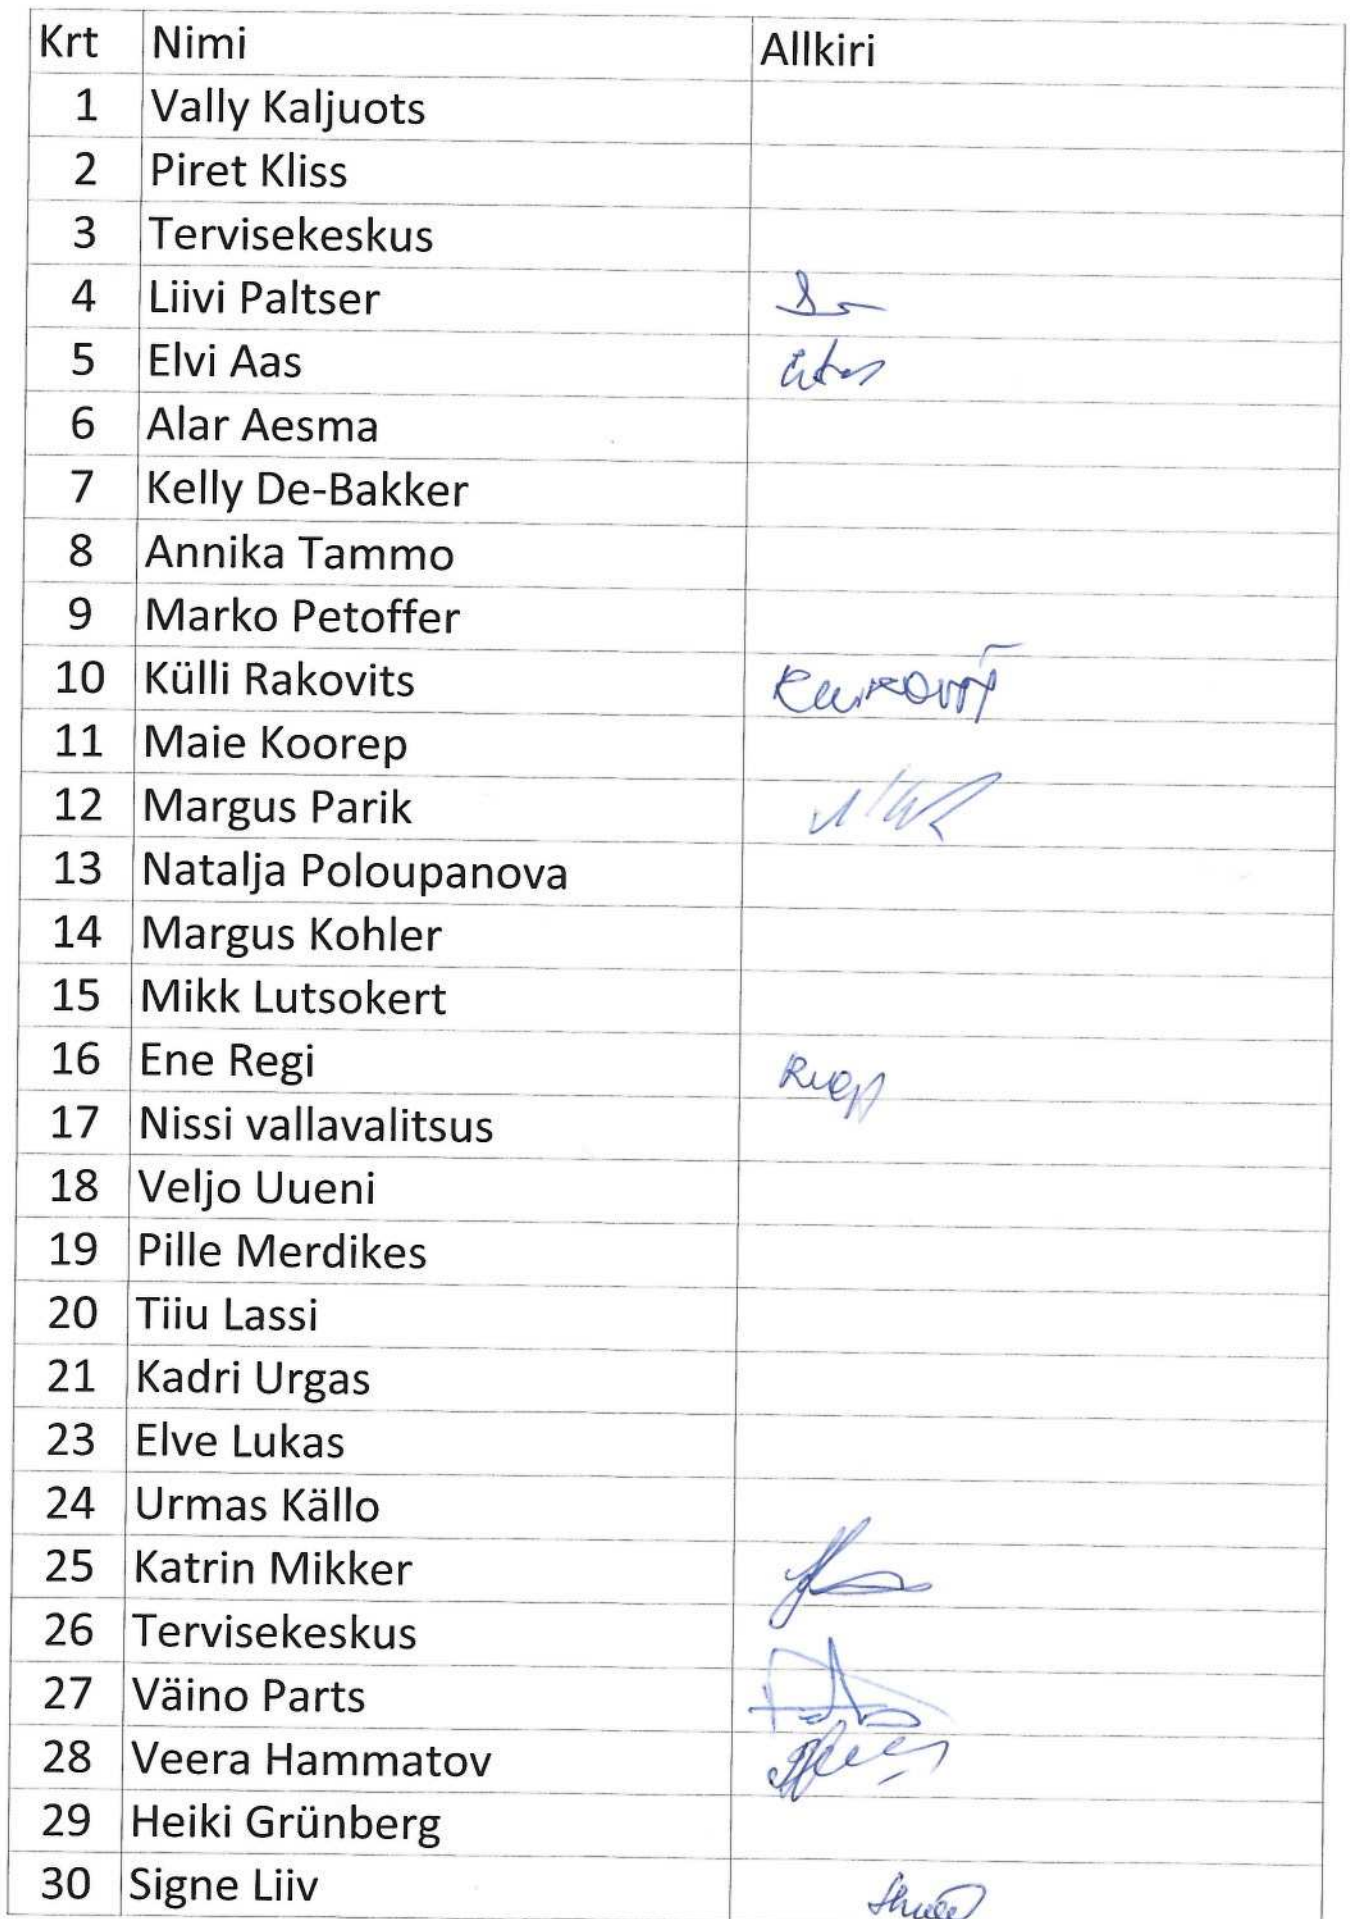 Krt Nimi Allkiri
1 Vally Kaljuots
2 Piret Kliss
3 Tervisekeskus
4 Liivi Paltser
5 Elvi Aas
6 Alar Aesma
7 Kelly De-Bakker
8 Annika Tammo
9 Marko Petoffer
10 Külli Rakovits
11 Maie Koorep
12 Margus Parik
13 Natalja Poloupanova
14 Margus Kohler
15 Mikk Lutsokert
16 Ene Regi
17 Nissi vallavalitsus
18 Veljo Uueni
19 Pille Merdikes
20 Tiiu Lassi
21 Kadri Urgas
23 Elve Lukas
24 Urmas Källo
25 Katrin Mikker
26 Tervisekeskus
27 Väino Parts
28 Veera Hammatov
29 Heiki Grünberg
30 Signe Liiv